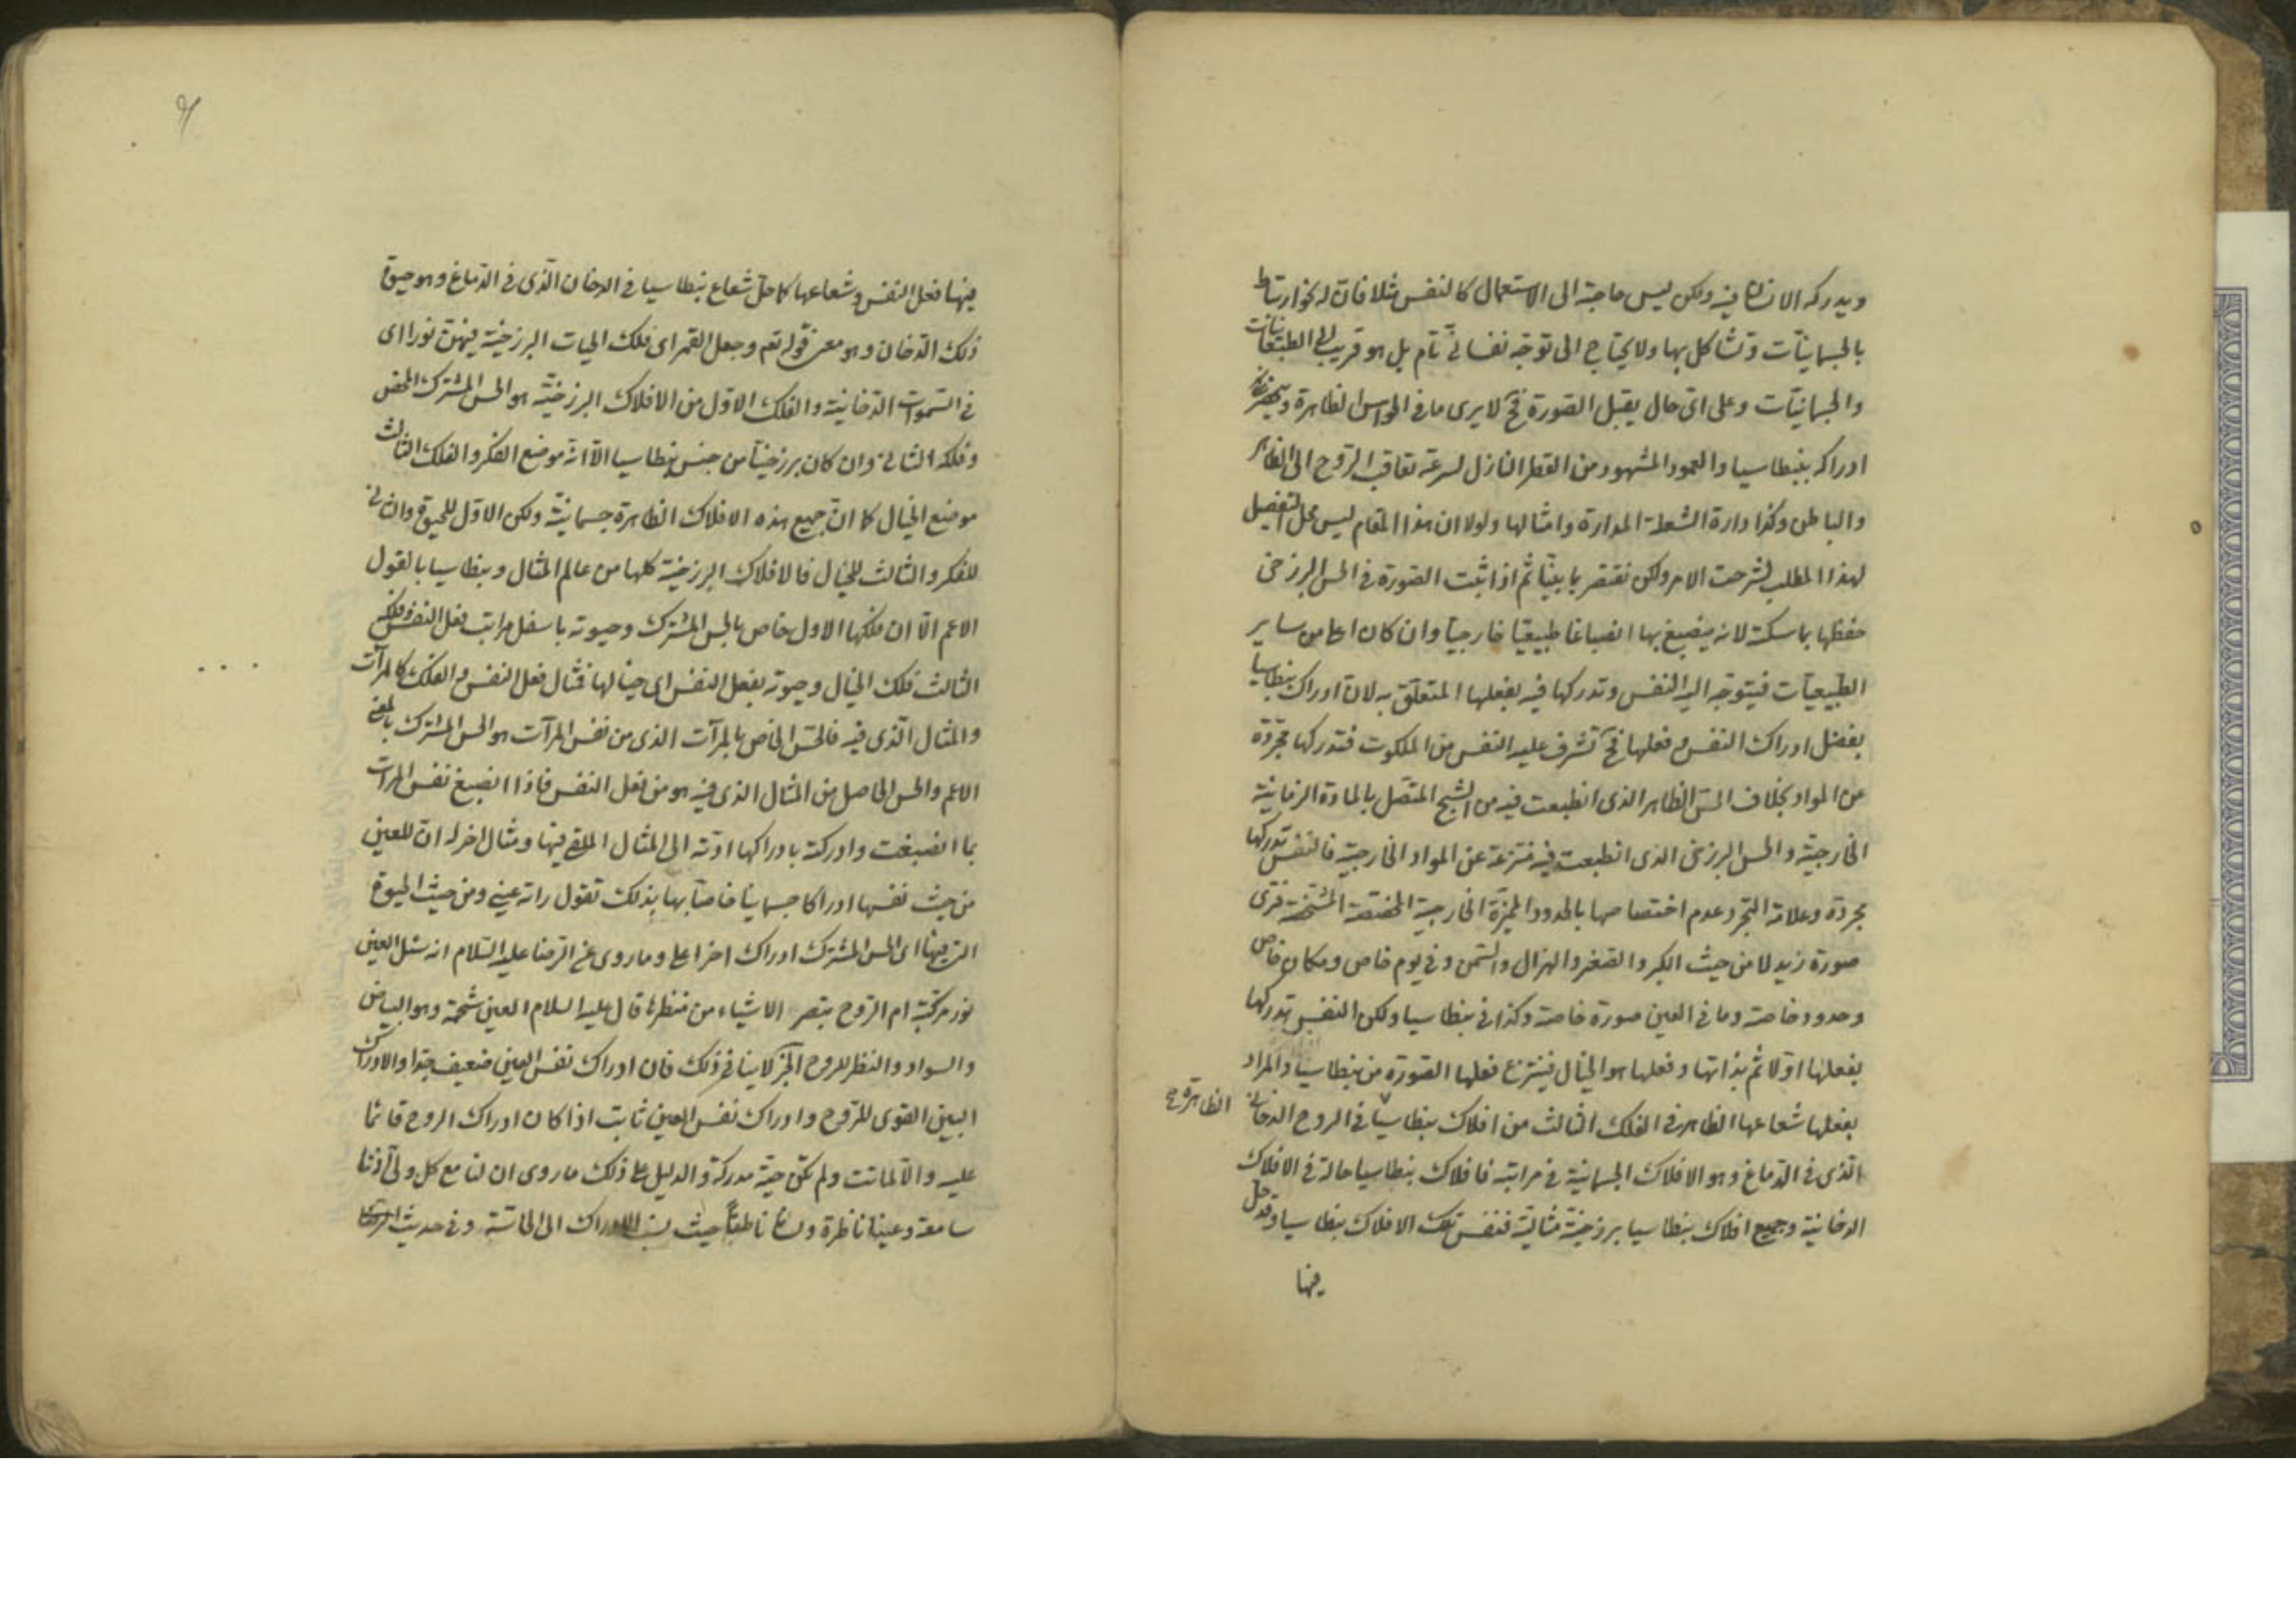 ويدركه الانسان فيه ولكن ليس حاجته الى الاستعمال كالنفس مثلا فان له نحو ارتباط
بالجسمانيات وتشاكل بها ولا يحتاج الى توجه نفساني تام بل هو قريب الى الطبيعيات
والجسمانيات وعلى اي حال يقبل الصورة فح لا يرى ما في الحواس الظاهرة
ادراكه ببنطاسيا والعمود المشهود من القطر النازل لسرعة تعاقب الروح الى الظاهر
والباطن وكذا دارة الشعلة المدارة وامثالها ولولا ان هذا المقام ليس محل التفصيل
لهذا المطلب لشرحت الامر ولكن نقتصر بما بينا ثم اذا ثبت الصورة في الحس البرزخي
حفظها بماسكته لانه ينصبغ بها انصباغا طبيعيا خارجيا وان كان اعلى من ساير
الطبيعيات فيتوجه اليه النفس وتدركها فيه بفعلها المتعلق به لان ادراك بنطاسيا
بفضل ادراك النفس وفعلها فح تشرف عليه النفس من الملكوت فتدركها مجردة
عن المواد بخلاف الحس الظاهر الذى انطبعت فيه من الشبح المتصل بالمادة الزمانية
الخارجية والحس البرزخى الذى انطبعت فيه منتزعة عن المواد الخارجية فالنفس تدركها
مجردة وعلامة التجرد عدم اختصاصها بالحدود المميزة الخارجية المختصة المشخصة فترى
صورة زيد لا من حيث الكبر والصغر والهزال والسمن وفي يوم خاص ومكان خاص
وحدود خاصة وما في العين صورة خاصة وكذا في بنطاسيا ولكن النفس تدركها
بفعلها اولا ثم بذاتها وفعلها هو الخيال فينتزع فعلها الصورة من بنطاسيا والمراد
بفعلها شعاعها الظاهر في الفلك الثالث من افلاك بنطاسيا في الروح الدخاني
الظاهرة صح
الذى في الدماغ وهو الافلاك الجسمانية في مراتبه فافلاك بنطاسيا حالة في الافلاك
الدخانية وجميع افلاك بنطاسيا برزخية مثالية فنفس تلك الافلاك بنطاسيا وقد حل
فيها
فيها فعل النفس وشعاعها كما حل شعاع بنطاسيا في الدخان الذى في الدماغ وهو حيوة
ذلك الدخان وهو معنى قوله تعم وجعل القمر اى فلك الحيات البرزخية فيهن نورا اى
في السموات الدخانية والفلك الاول من الافلاك البرزخية هو الحس المشترك المحض
وفلكه الثاني وان كان برزخيا من جنس بنطاسيا الا انه موضع الفكر والفلك الثالث
موضع الخيال كما ان جميع هذه الافلاك الظاهرة جسمانية ولكن الاول للحيوة والثاني
للفكر والثالث للخيال فالافلاك البرزخية كلها من عالم المثال وبنطاسيا بالقول
الاعم الا ان فلكها الاول خاص بالحس المشترك وحيوته باسفل مراتب فعل النفس وفلكه
الثالث فلك الخيال وحيوته بفعل النفس اى خيالها فمثال فعل النفس والفلك كالمرآت
والمثال الذى فيه فالحس الخاص بالمرآت الذى من نفس المرآت هو الحس المشترك بالمعنى
الاعم والحس الحاصل من المثال الذى فيه هو من فعل النفس فاذا انصبغ نفس المرات
بما انصبغت وادركته بادراكها ادته الى المثال الملقى فيها ومثال اخر له ان للعين
من حيث نفسها ادراكا جسمانيا خاصا بها بذلك تقول راته عيني ومن حيث الحيوة
التي فيها اى الحس المشترك ادراك اخر اعلى وما روى عن الرضا عليه السلام انه سئل العين
نور مركبة ام الروح تبصر الاشياء من منظرها قال عليه السلام العين شحمة وهو البياض
والسواد والنظر للروح الخبر لا ينافي ذلك فان ادراك نفس العين ضعيف جدا والادراك
البين القوى للروح وادراك نفس العين ثابت اذا كان ادراك الروح قائما
عليه والا لماتت ولم تكن حية مدركة والدليل على ذلك ما روى ان لنا مع كل ولى اذنا
سامعة وعينا ناظرة ولسانا ناطقا حيث نسب الادراك الى الحاسة وفي حديث